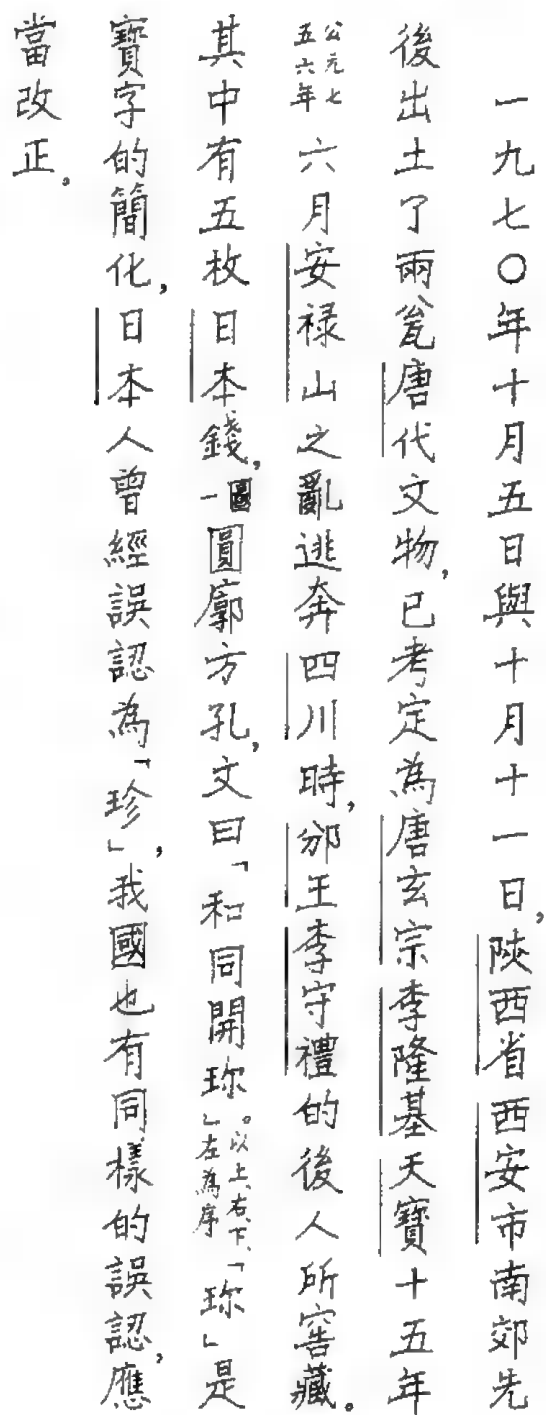 一九七〇年十月五日與十月十一日,陝西省西安市南郊先
後出土了兩瓮唐代文物,已考定為唐玄宗李隆基天寶十五年
公元七五六年六月安禄山之亂逃奔四川時,邠王李守禮的後人所窖藏。
其中有五枚日本錢,圖一圓廓方孔,文曰「和同開珎」。以上、右、下、左為序「珎」是
寶字的簡化,日本人曾經誤認為「珍」,我國也有同樣的誤認,應
當改正。